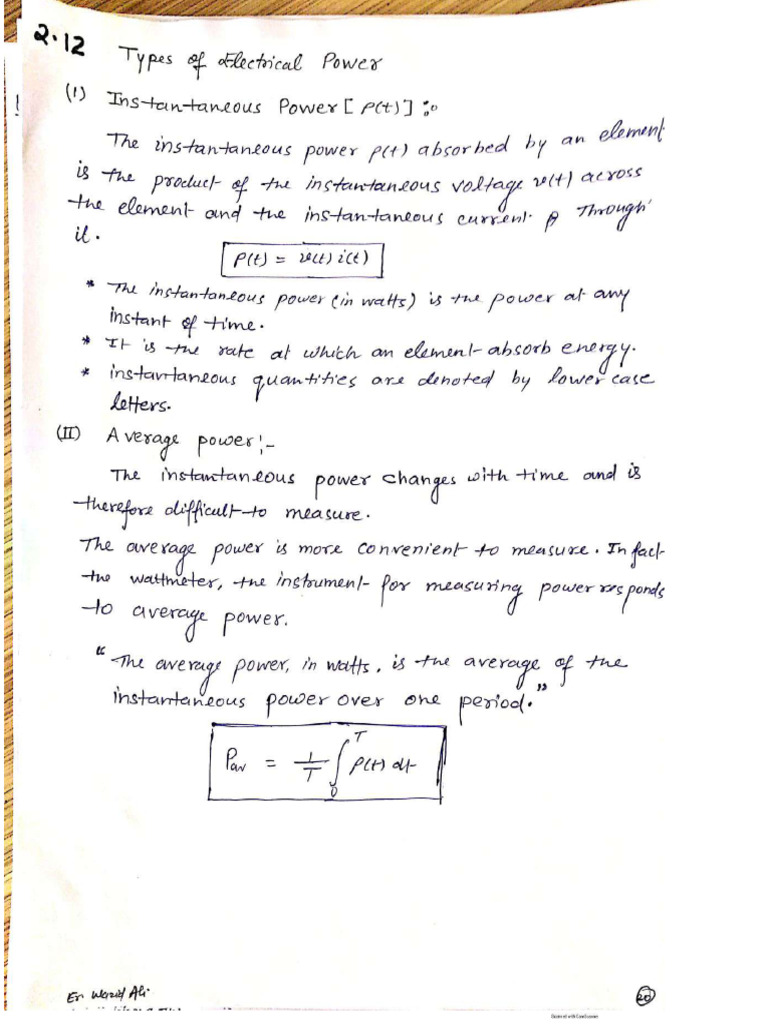 2.12 Types of Electrical Power
(I) Instantaneous Power [P(t)] :-
The instantaneous power p(t) absorbed by an element
is the product of the instantaneous voltage v(t) across
the element and the instantaneous current through
it.
P(t) = v(t) i(t)
* The instantaneous power (in watts) is the power at any
instant of time.
* It is the rate at which an element absorb energy.
* instantaneous quantities are denoted by lower case
letters.
(II) Average power :-
The instantaneous power changes with time and is
therefore difficult to measure.
The average power is more convenient to measure. In fact
the wattmeter, the instrument for measuring power responds
to average power.
"The average power, in watts, is the average of the
instantaneous power over one period."
Pav = 1/T ∫₀ᵀ P(t) dt
Er Wazid Ali
20